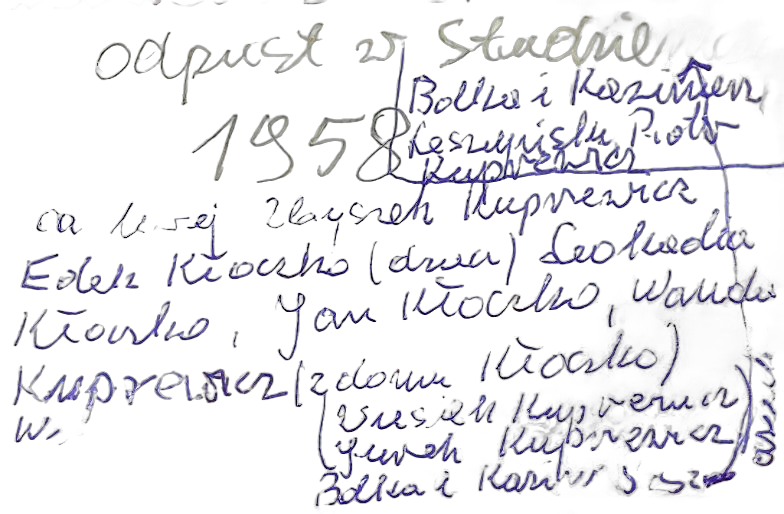 odpust w Studzie
1958
Bolka i Kazimierz
Piotr
Kuprewicz
od lewej Zbyszek Kuprewicz
Edek Kłoczko (dzieci) Leokadia
Kłoczko, Jan Kłoczko, Wanda
Kuprewicz (z domu Kłoczko)
Kuprewicz)
(Jurek Kuprewicz)
Bolka i